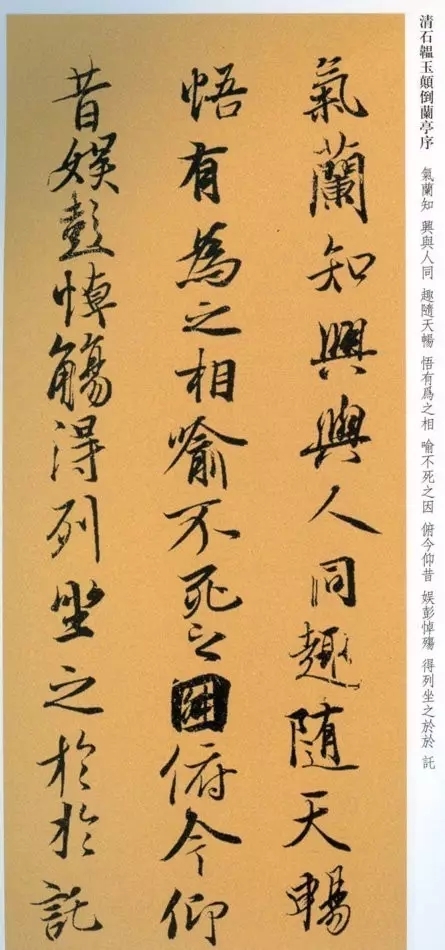 清石韞玉顛倒蘭亭序　氣蘭知　興與人同　趣隨天暢　悟有爲之相　喻不死之因　俯今仰昔　娛彭悼殤　得列坐之於於　託
氣蘭知興與人同趣隨天暢
悟有為之相喻不死之因俯今仰
昔娛彭悼觴得列坐之於於託